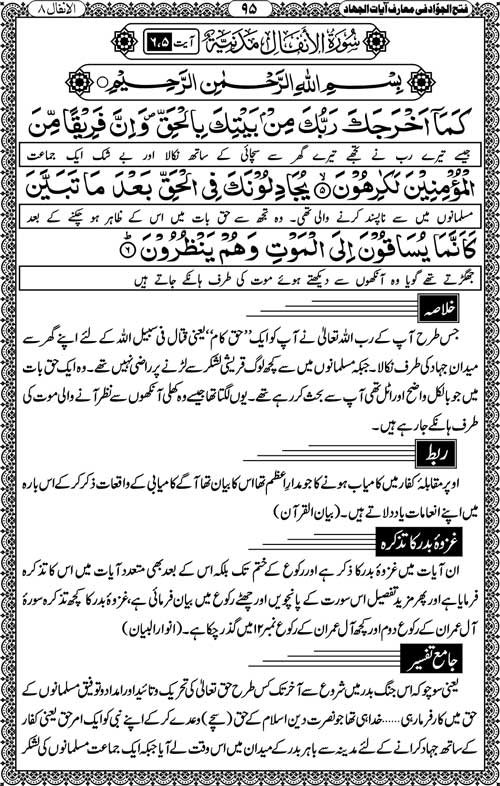 فتح الجوّاد فی معارف آیات الجہاد
۹۵
الانفال ۸
سُوْرَةُ الْاَنْفَالِ مَدَنِیَّةٌ
آیت ۶،۵
بِسْمِ اللهِ الرَّحْمٰنِ الرَّحِیْمِ
كَمَاۤ اَخْرَجَكَ رَبُّكَ مِنْۢ بَیْتِكَ بِالْحَقِّ ۪ وَاِنَّ فَرِیْقًا مِّنَ
جیسے تیرے رب نے تجھے تیرے گھر سے سچائی کے ساتھ نکالا اور بے شک ایک جماعت
الْمُؤْمِنِیْنَ لَكٰرِهُوْنَ ۵ یُجَادِلُوْنَكَ فِی الْحَقِّ بَعْدَ مَا تَبَیَّنَ
مسلمانوں میں سے ناپسند کرنے والی تھی۔ وہ تجھ سے حق بات میں اس کے ظاہر ہو چکنے کے بعد
كَاَنَّمَا یُسَاقُوْنَ اِلَی الْمَوْتِ وَهُمْ یَنْظُرُوْنَ ۶
جھگڑتے تھے گویا وہ آنکھوں سے دیکھتے ہوئے موت کی طرف ہانکے جاتے ہیں
خلاصہ
جس طرح آپ کے رب اللہ تعالیٰ نے آپ کو ایک ’’حق کام‘‘ یعنی قتال فی سبیل اللہ کے لئے اپنے گھر سے
میدانِ جہاد کی طرف نکالا۔ جبکہ مسلمانوں میں سے کچھ لوگ قریشی لشکر سے لڑنے پر راضی نہیں تھے۔ وہ ایک حق بات
میں جو بالکل واضح اور اٹل تھی آپ سے بحث کر رہے تھے۔ یوں لگتا تھا جیسے وہ کھلی آنکھوں سے نظر آنے والی موت کی
طرف ہانکے جا رہے ہیں۔
ربط
اوپر مقابلۂ کفار میں کامیاب ہونے کا جو مدارِ اعظم تھا اس کا بیان تھا آگے کامیابی کے واقعات ذکر کر کے اس بارہ
میں اپنے انعامات یاد دلاتے ہیں۔ (بیان القرآن)
غزوۂ بدر کا تذکرہ
ان آیات میں غزوۂ بدر کا ذکر ہے اور رکوع کے ختم تک بلکہ اس کے بعد بھی متعدد آیات میں اس کا تذکرہ
فرمایا ہے اور پھر مزید تفصیل اس سورت کے پانچویں اور چھٹے رکوع میں بیان فرمائی ہے، غزوۂ بدر کا کچھ تذکرہ سورۂ
آل عمران کے رکوع دوم اور کچھ آل عمران کے رکوع نمبر ۱۲ میں گذر چکا ہے۔ (انوار البیان)
جامع تفسیر
یعنی سوچو کہ اس جنگ بدر میں شروع سے آخر تک کس طرح حق تعالیٰ کی تحریک و تائید اور امداد و توفیق مسلمانوں کے
حق میں کارفرما رہی......خدا ہی تھا جو نصرت دین اسلام کے حق (سچے) وعدے کر کے اپنے نبی کو ایک امر حق یعنی کفار
کے ساتھ جہاد کرانے کے لئے مدینہ سے باہر بدر کے میدان میں اس وقت لے آیا جبکہ ایک جماعت مسلمانوں کی لشکر